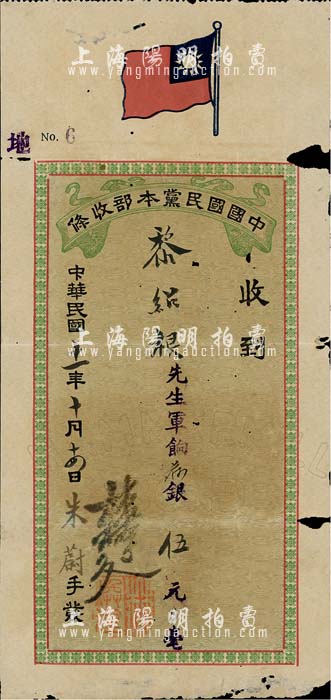 上海陽明拍賣
www.yangmingauction.com
地 No. 6
中國國民黨本部收條
收到
黎紹
先生軍餉 銀 伍元 毫
中華民國十一年十月十 日 朱蔚 手發
上海陽明拍賣
www.yangmingauction.com
上海陽明拍賣
www.yangmingauction.com